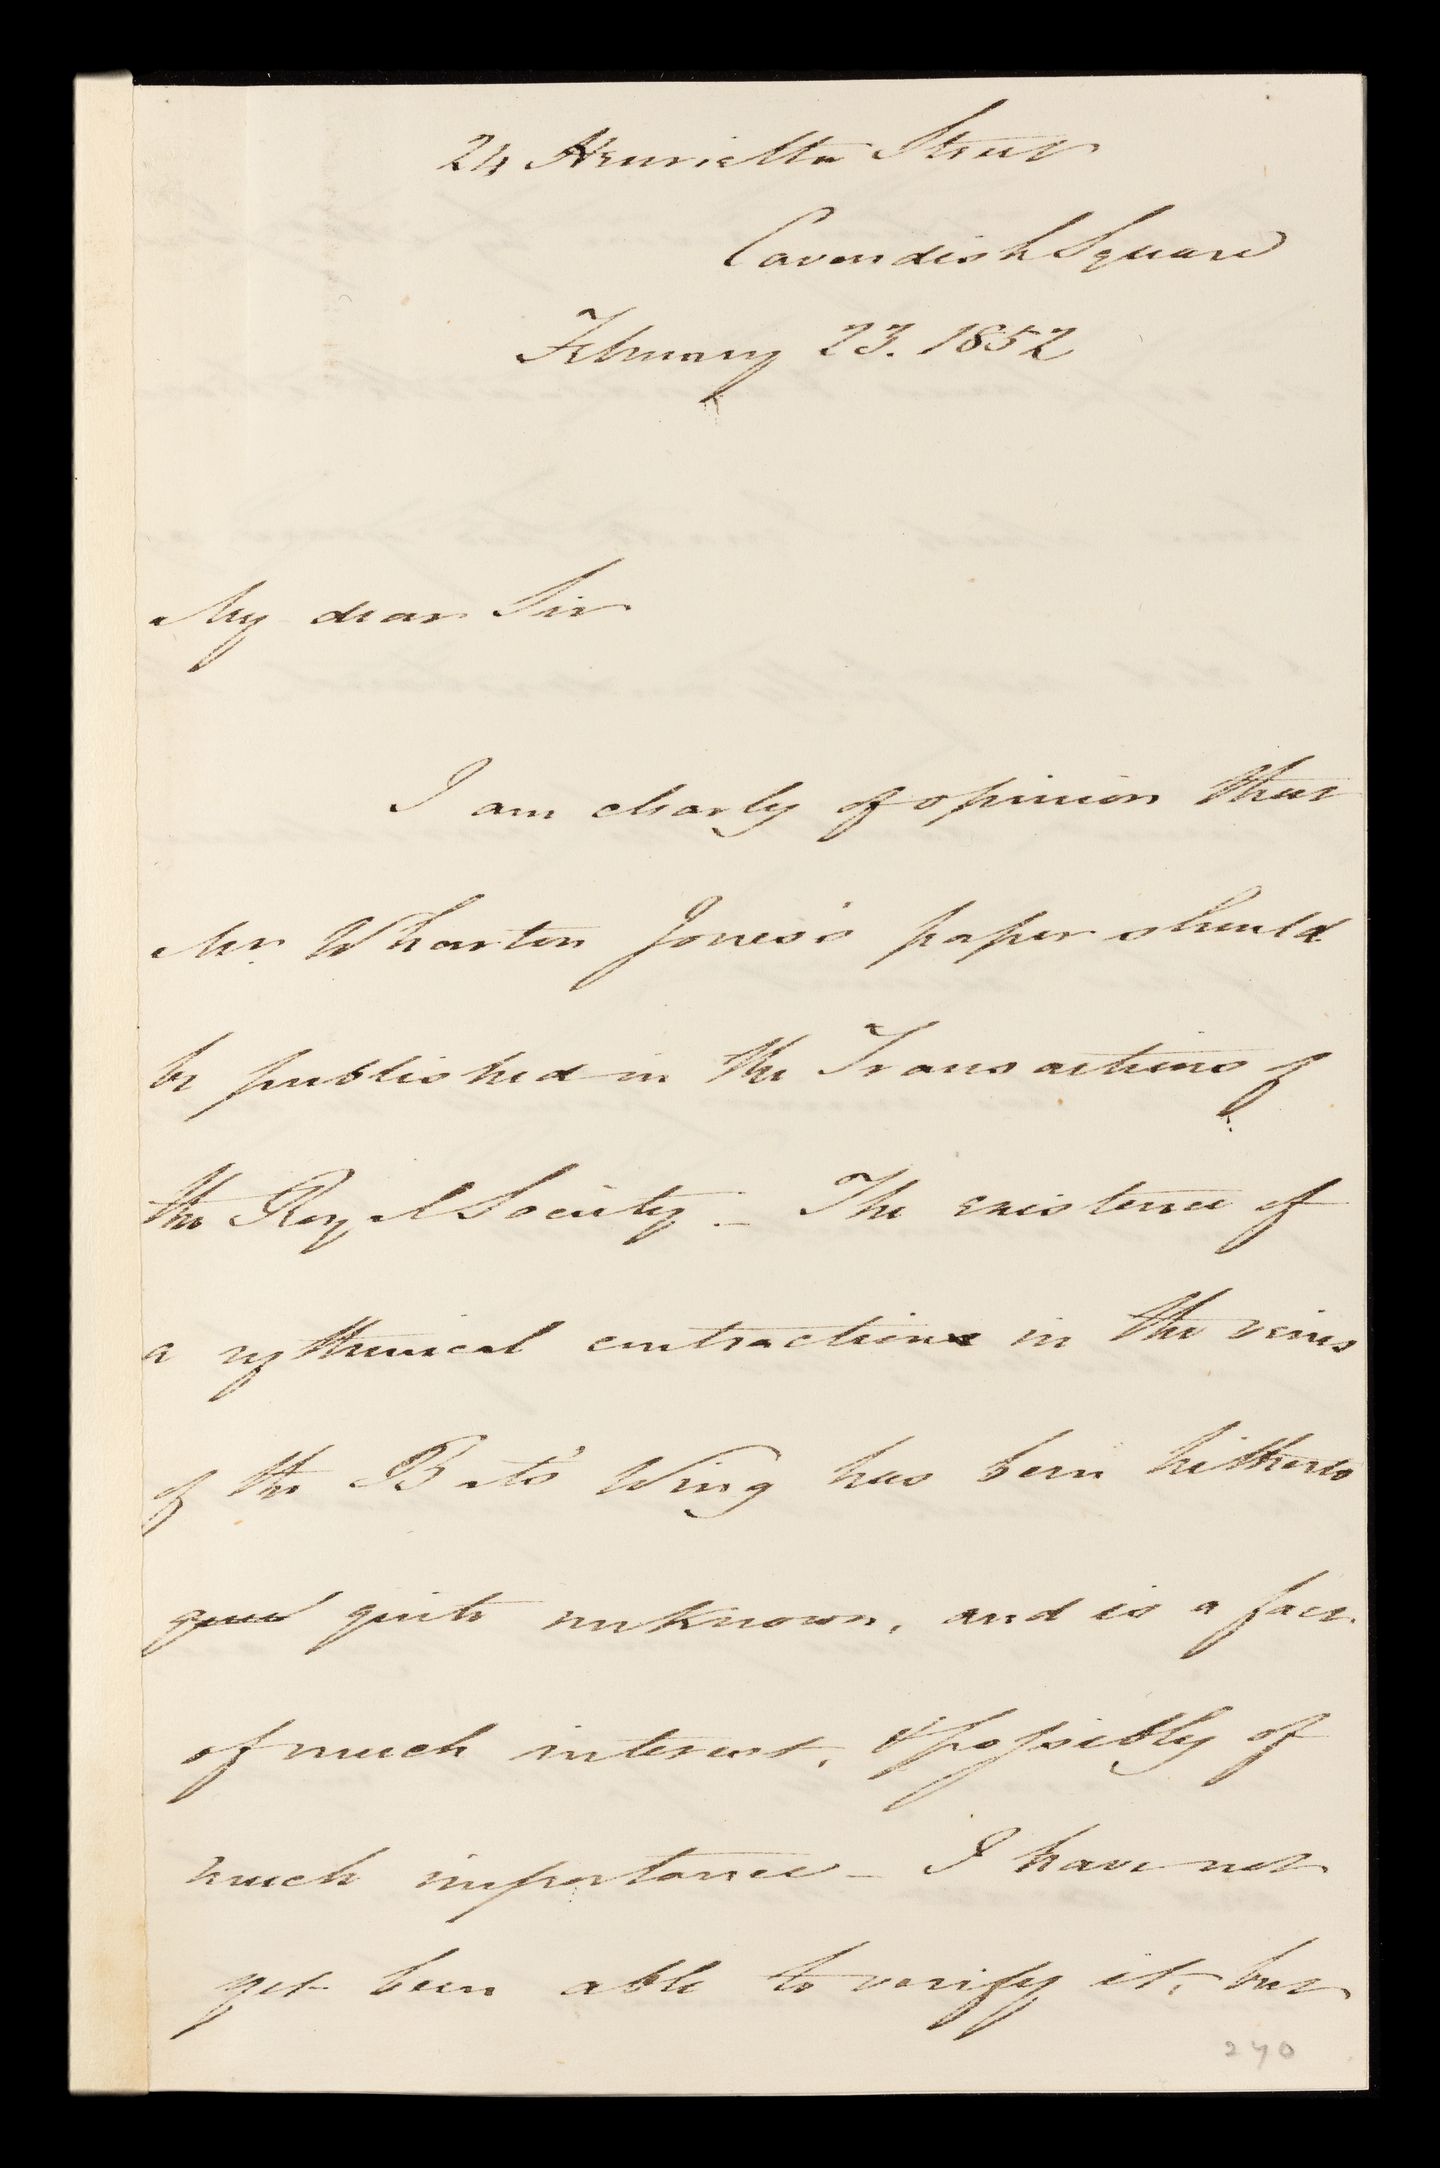 24 Henrietta Street
Cavendish Square
February 23. 1852
My dear Sir
I am clearly of opinion that
Mr. Wharton Jones's paper should
be published in the Transactions of
the Royal Society - The existence of
a rythmical contraction in the veins
of the Bats' Wing has been hitherto
quite unknown, and is a fact
of much interest, & possibly of
much importance - I have not
yet been able to verify it, but
270